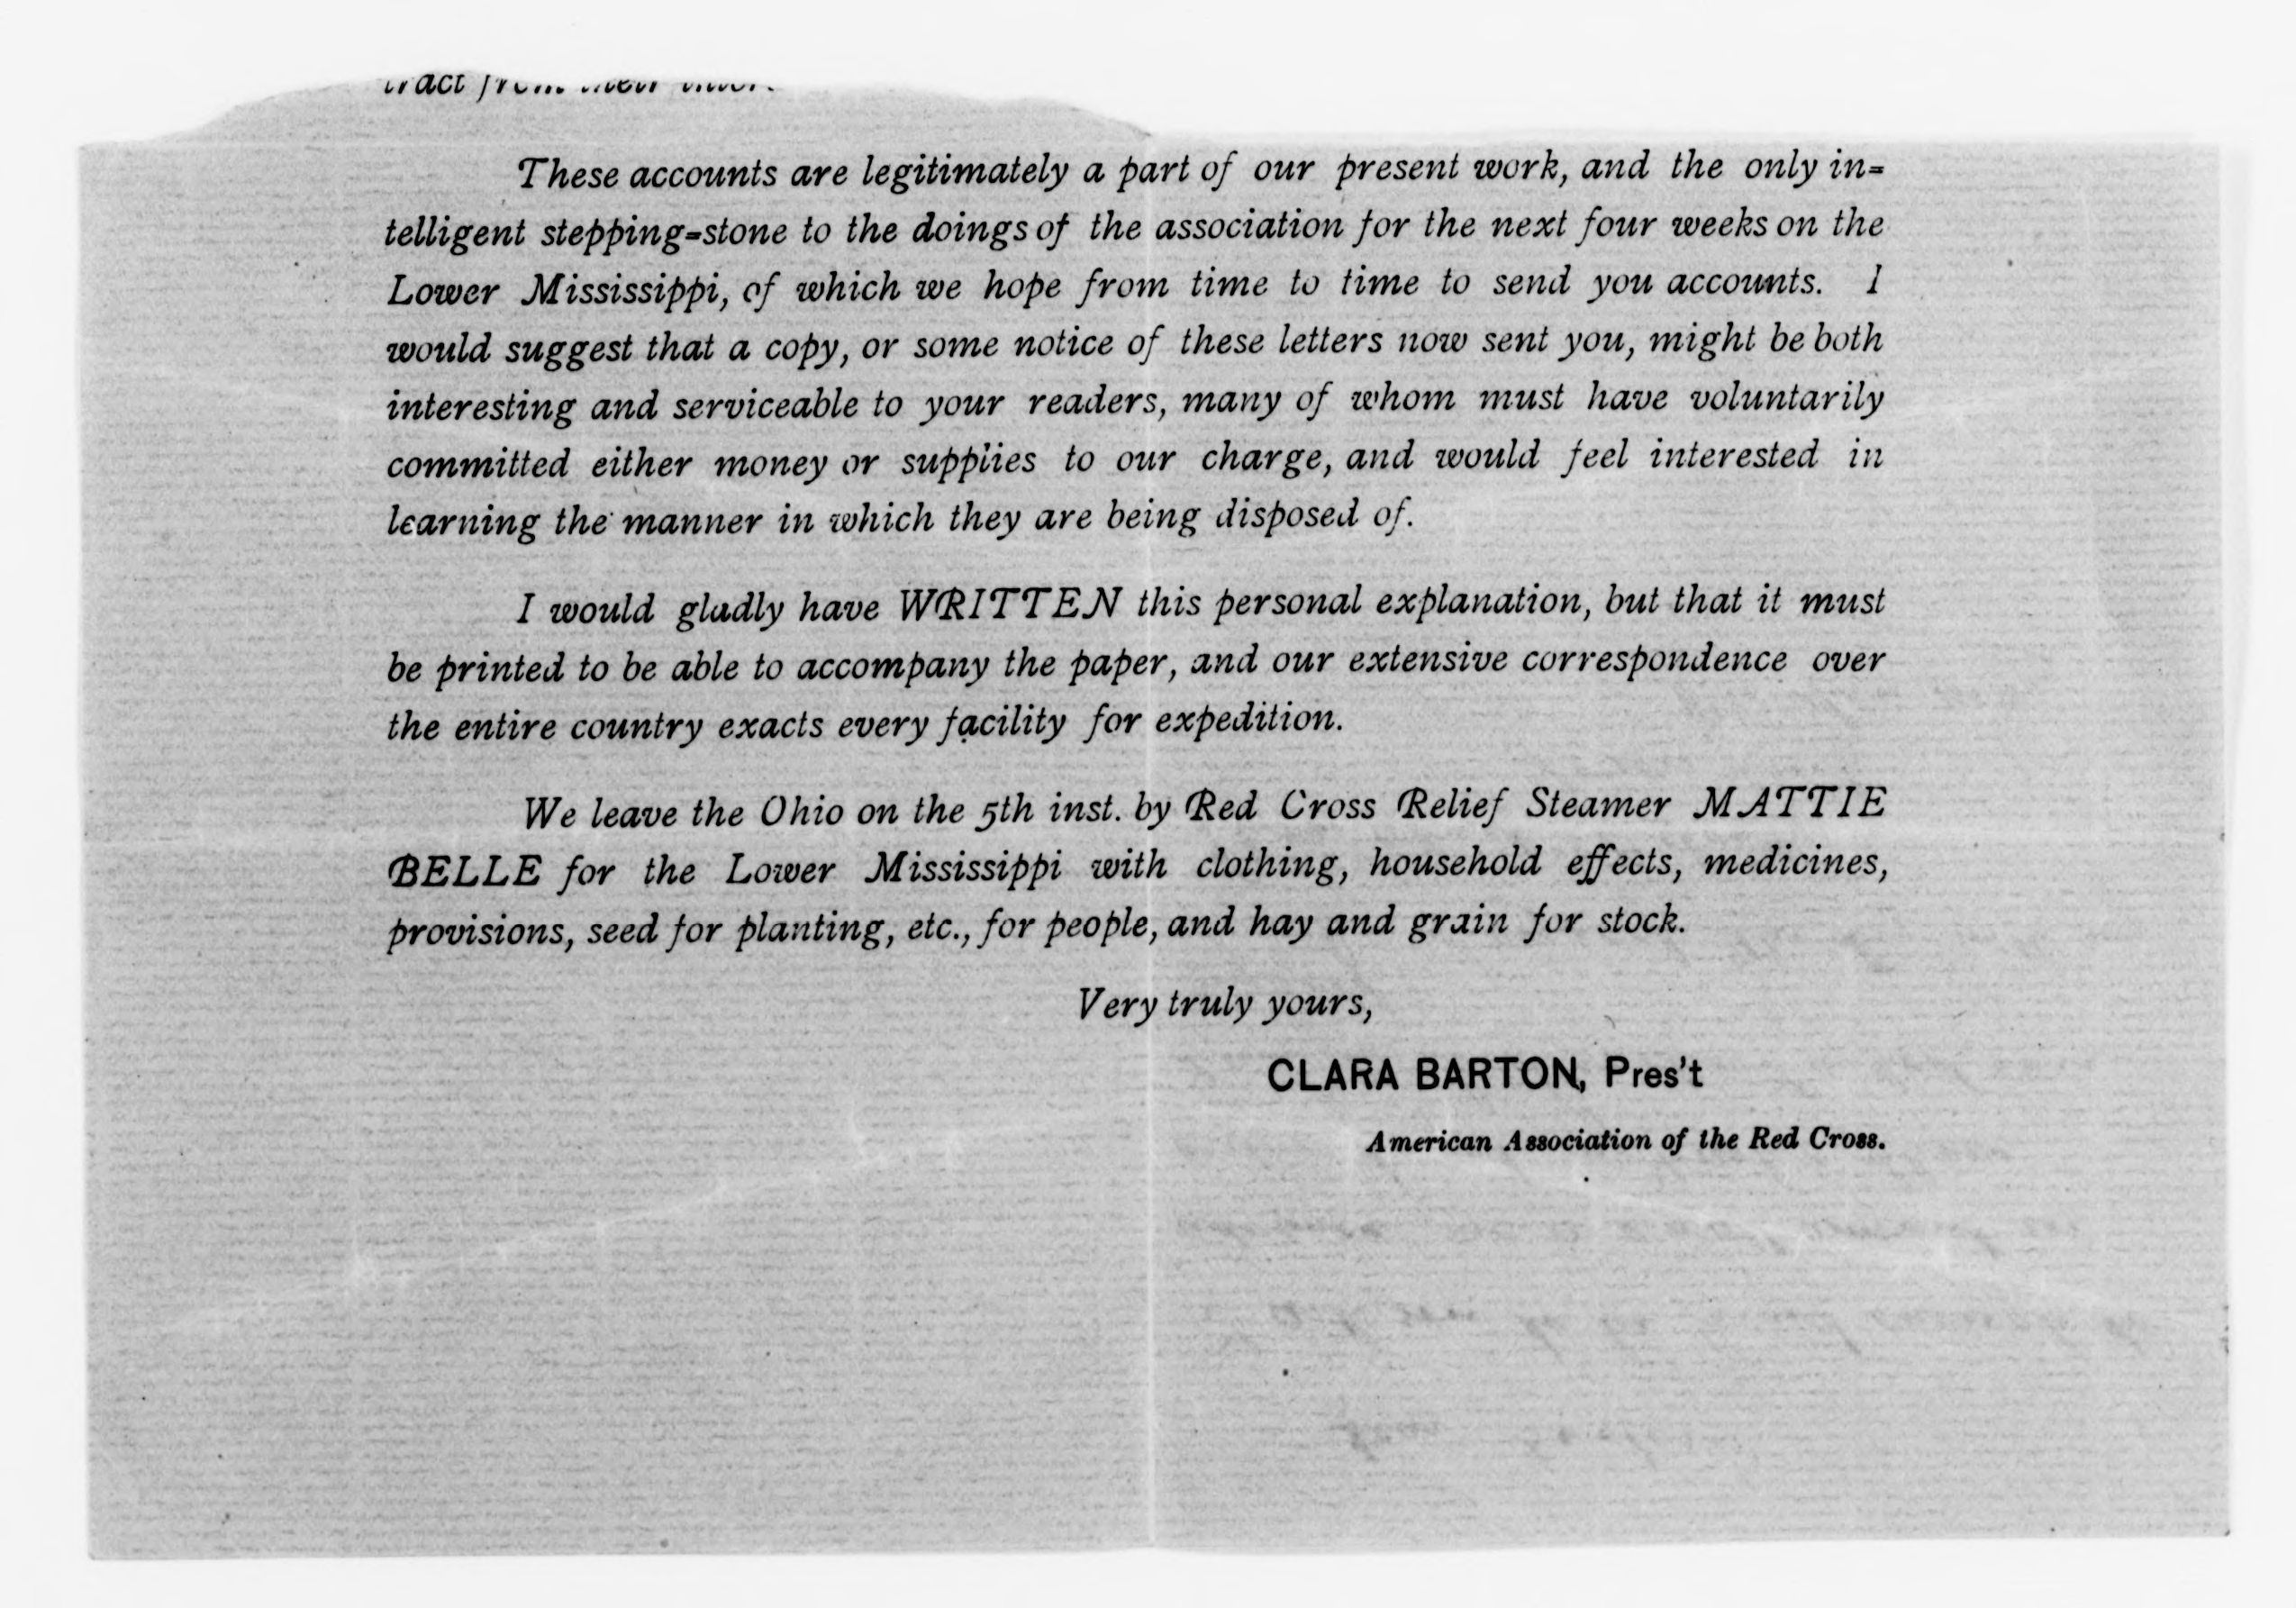 tract from their
These accounts are legitimately a part of our present work, and the only in=
telligent stepping=stone to the doings of the association for the next four weeks on the
Lower Mississippi, of which we hope from time to time to send you accounts. I
would suggest that a copy, or some notice of these letters now sent you, might be both
interesting and serviceable to your readers, many of whom must have voluntarily
committed either money or supplies to our charge, and would feel interested in
learning the manner in which they are being disposed of.
I would gladly have WRITTEN this personal explanation, but that it must
be printed to be able to accompany the paper, and our extensive correspondence over
the entire country exacts every facility for expedition.
We leave the Ohio on the 5th inst. by Red Cross Relief Steamer MATTIE
BELLE for the Lower Mississippi with clothing, household effects, medicines,
provisions, seed for planting, etc., for people, and hay and grain for stock.
Very truly yours,
CLARA BARTON, Pres't
American Association of the Red Cross.